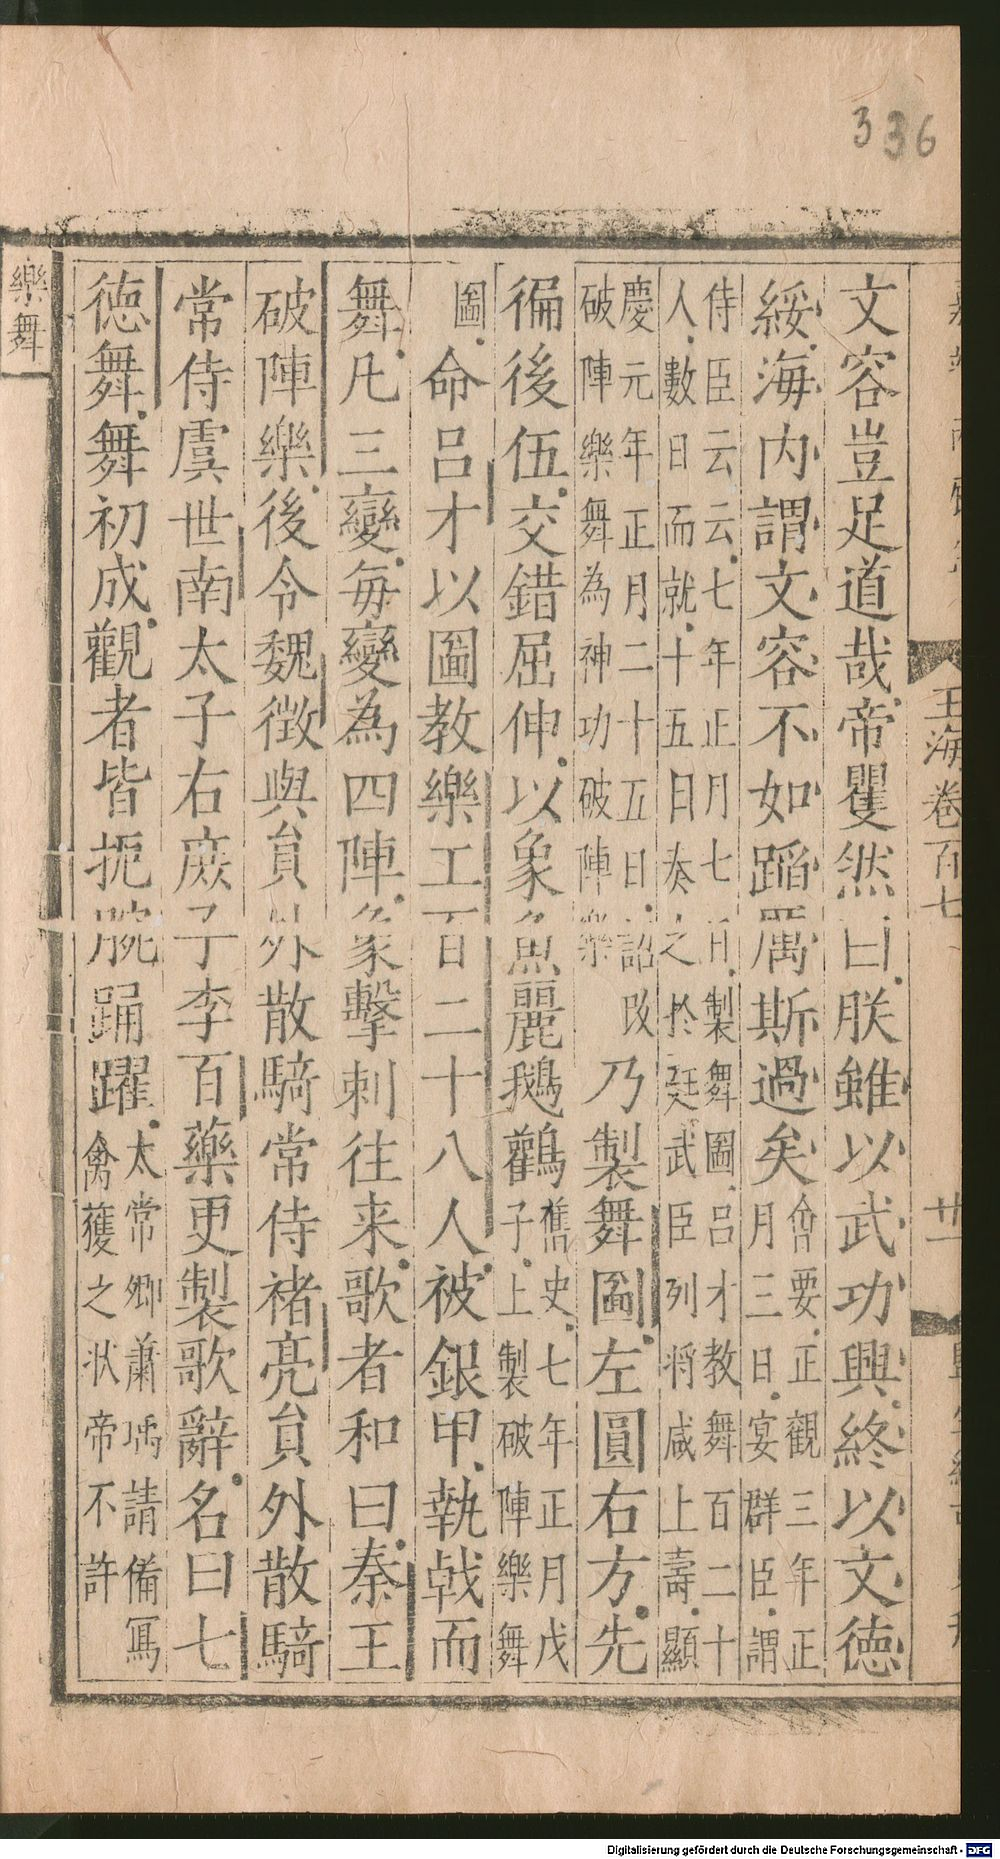 336
玉海卷百七
廿一
文容豈足道哉帝瞿然曰朕雖以武功興終以文德
綏海内謂文容不如蹈厲斯過矣
會要正觀三年正
月三日宴群臣謂
侍臣云云七年正月七日製舞圖吕才教舞百二十
人數日而就十五日奏之於廷武臣列將咸上壽顯
慶元年正月二十五日詔改
破陣樂舞為神功破陣樂
乃製舞圖左圓右方先
徧後伍交錯屈伸以象魚麗鵝鸛
舊史七年正月戊
子上製破陣樂舞
圖
命吕才以圖教樂工百二十八人被銀甲執戟而
舞凡三變每變為四陣象擊刺往来歌者和曰秦王
破陣樂後令魏徴與貟外散騎常侍褚亮貟外散騎
常侍虞世南太子右庶子李百藥更製歌辭名曰七
徳舞舞初成觀者皆扼腕踊躍
太常卿蕭瑀請備寫
禽獲之状帝不許
樂舞
Digitalisierung gefördert durch die Deutsche Forschungsgemeinschaft - DFG